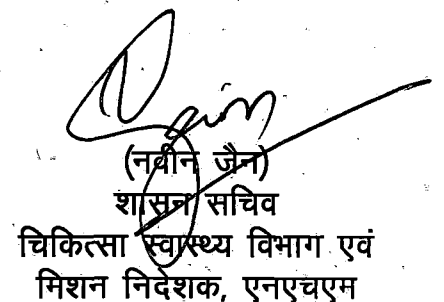 (नवीन जैन)
शासन सचिव
चिकित्सा स्वास्थ्य विभाग एवं
मिशन निदेशक, एनएचएम